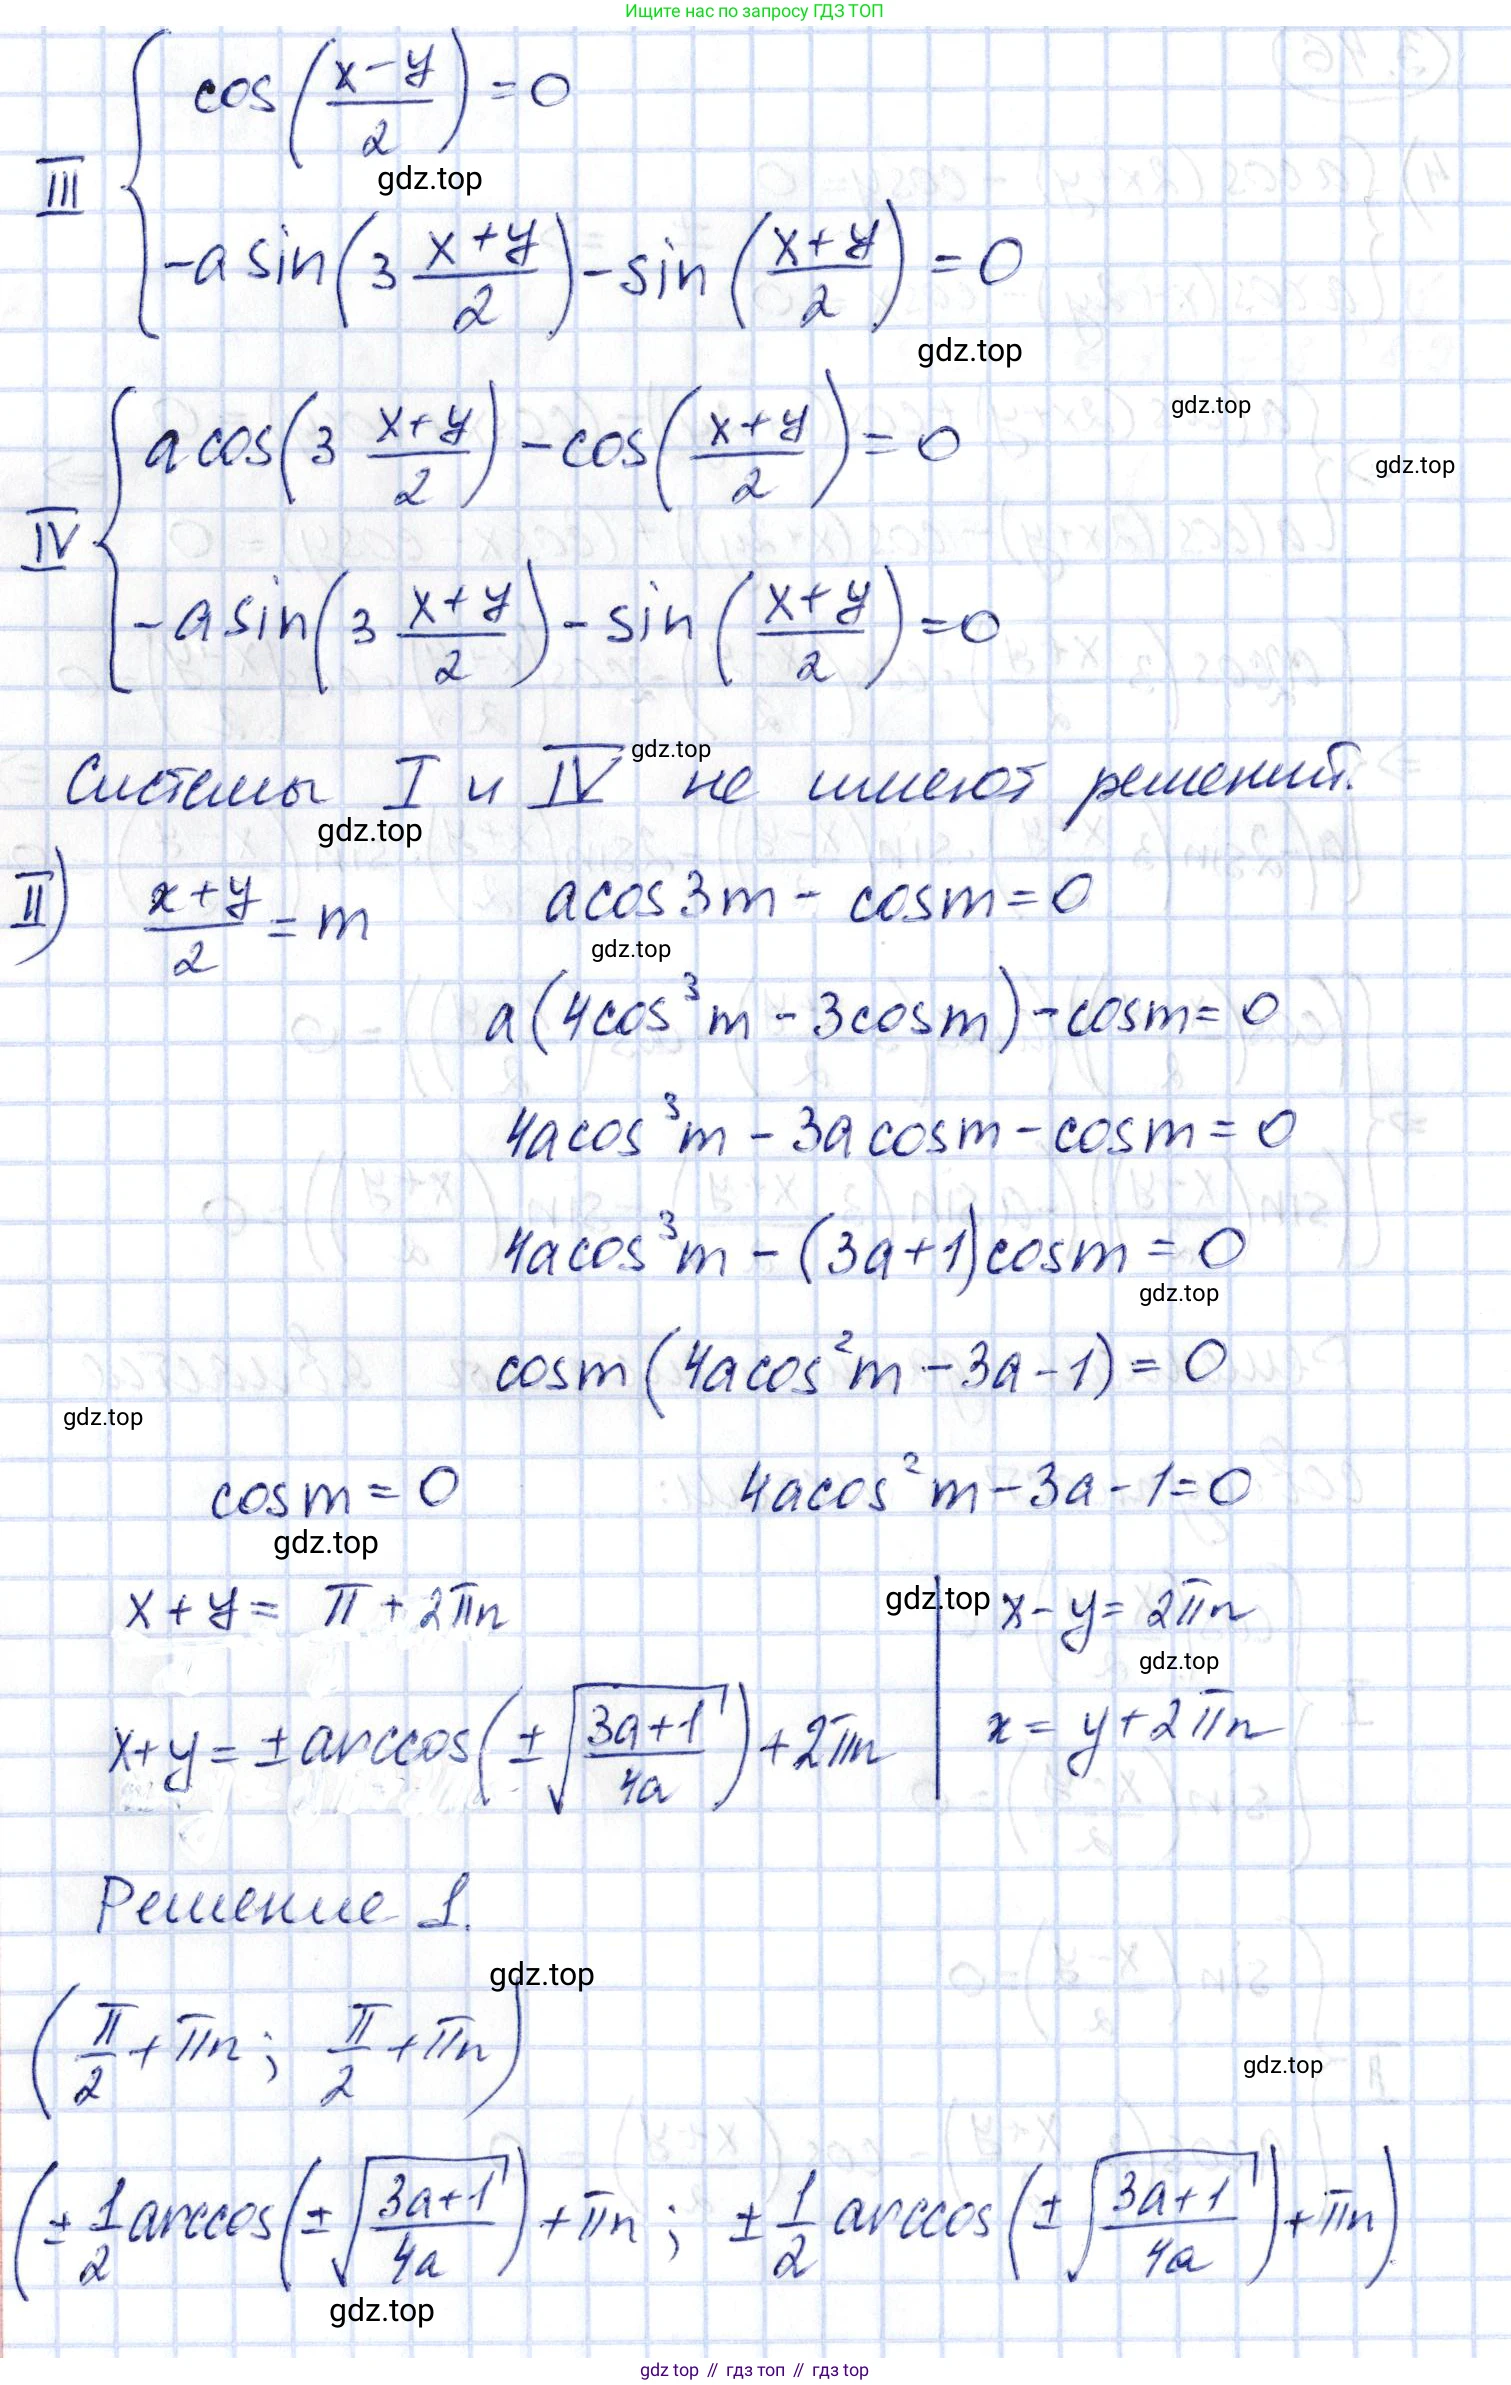 Ищите нас по запросу ГДЗ ТОП
III { cos((x-y)/2) = 0
gdz.top
-a sin(3 (x+y)/2) - sin((x+y)/2) = 0
gdz.top
IV { a cos(3 (x+y)/2) - cos((x+y)/2) = 0
gdz.top
gdz.top
-a sin(3 (x+y)/2) - sin((x+y)/2) = 0
Системы I и IV не имеют решений.
gdz.top
gdz.top
II) (x+y)/2 = m a cos3m - cosm = 0
gdz.top
a(4cos³m - 3cosm) - cosm = 0
4acos³m - 3a cosm - cosm = 0
4acos³m - (3a+1)cosm = 0
gdz.top
cosm(4acos²m - 3a - 1) = 0
gdz.top
cosm = 0 4acos²m - 3a - 1 = 0
gdz.top
x+y = π + 2πn | x-y = 2πn
gdz.top
gdz.top
x+y = ±arccos(±√((3a+1)/4a)) + 2πn | x = y + 2πn
Решение 1.
gdz.top
(π/2 + πn; π/2 + πn)
gdz.top
(±1/2 arccos(±√((3a+1)/4a)) + πn; ±1/2 arccos(±√((3a+1)/4a)) + πn)
gdz.top
gdz top // гдз топ // гдз top